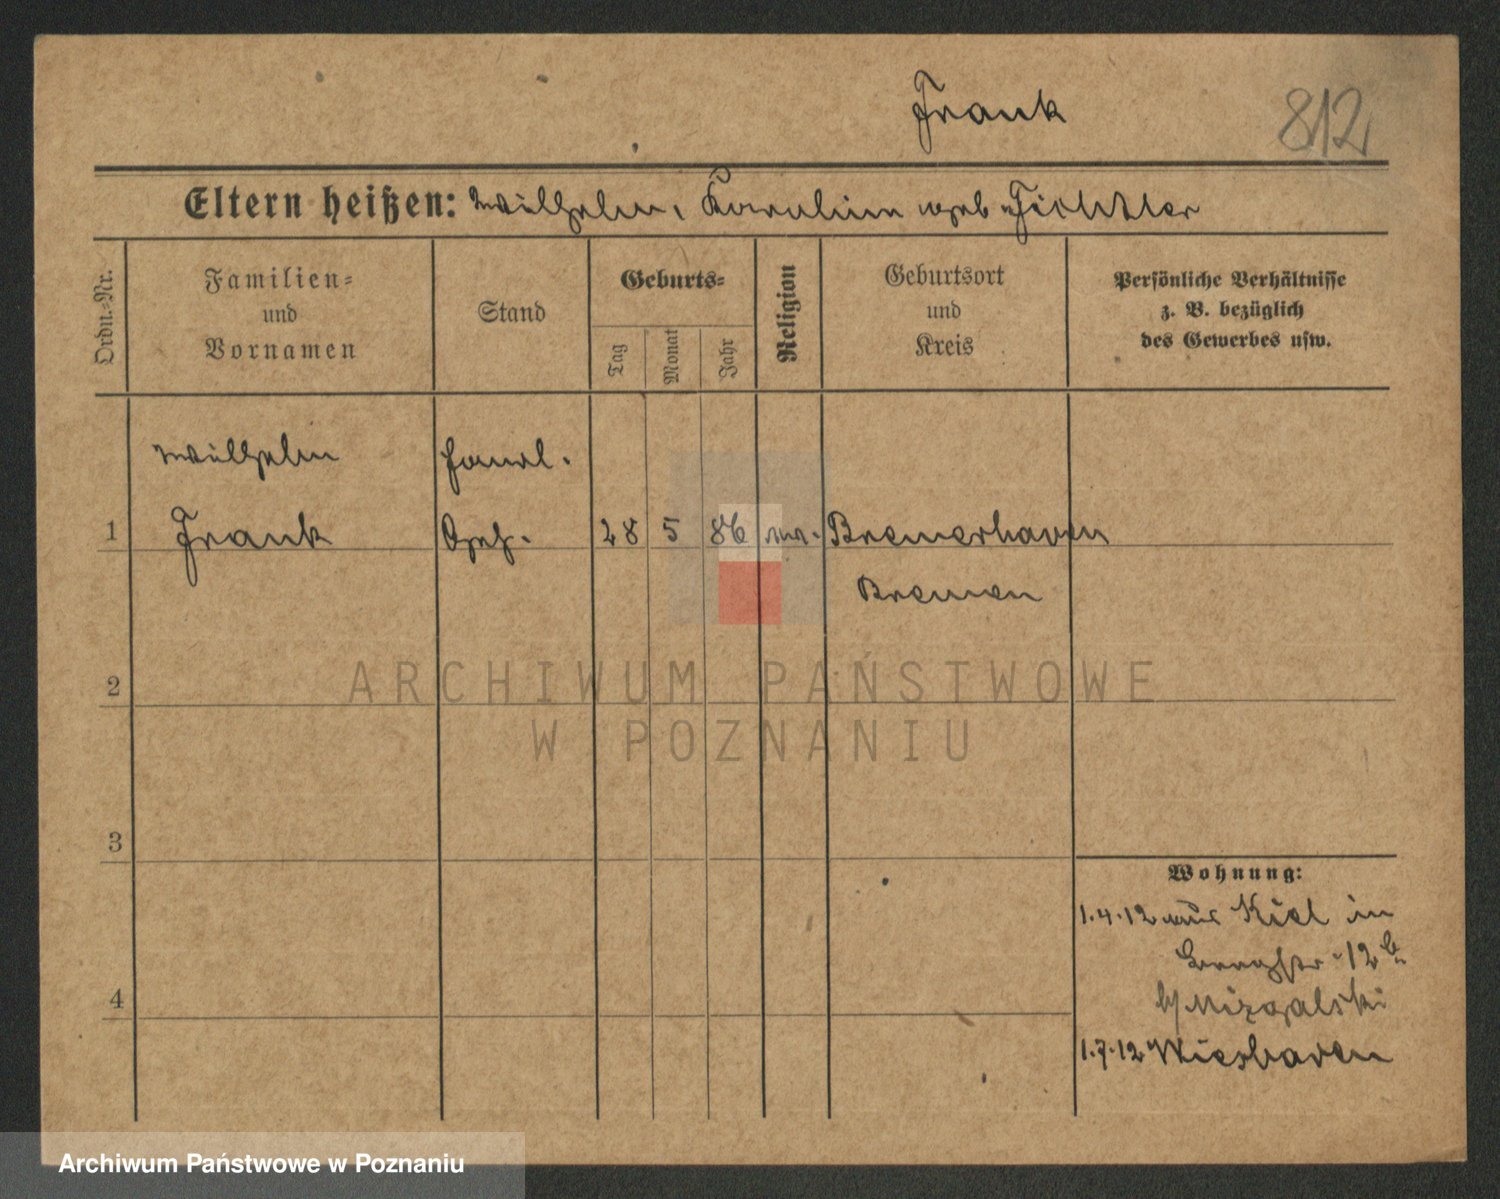 Frank
812
Eltern heißen: Wilhelm, Karoline geb. Fichtler
Ordn.-Nr.
Familien-
und
Vornamen
Stand
Geburts-
Tag
Monat
Jahr
Religion
Geburtsort
und
Kreis
Persönliche Verhältnisse
z. B. bezüglich
des Gewerbes usw.
Wilhelm
Handl.
1 Frank Geh. 28 5 86 ev. Bremerhaven
Bremen
2
3
4
Wohnung:
1.4.12 aus Kiel in
12b
b/ Mizgalski
1.7.12 Wiesbaden
ARCHIWUM PAŃSTWOWE
W POZNANIU
Archiwum Państwowe w Poznaniu